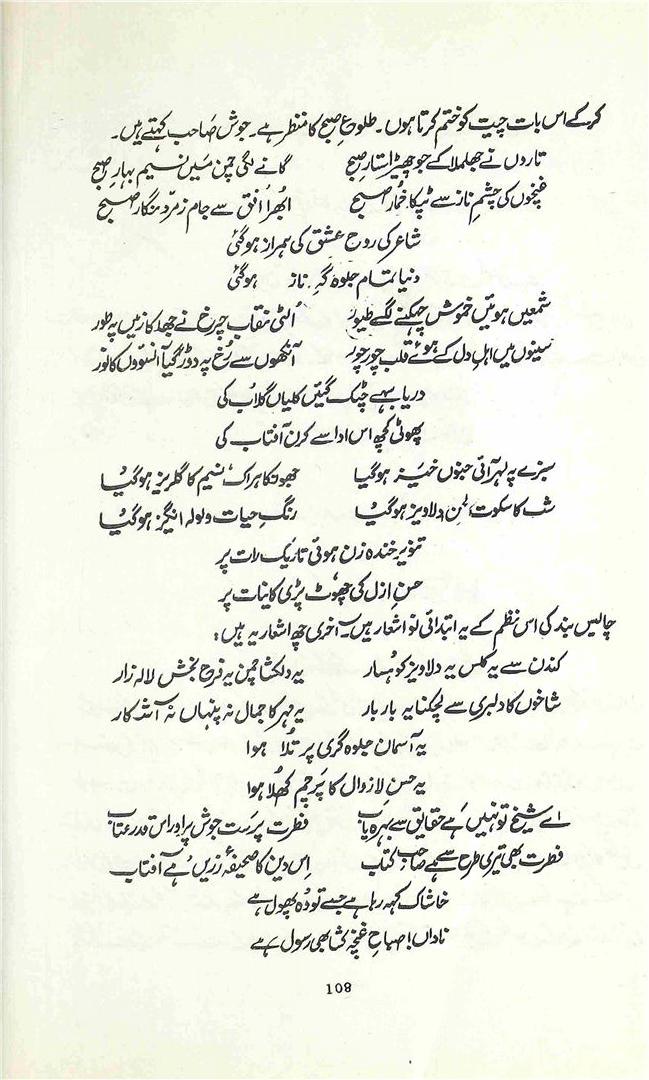 کر کے اس بات چیت کو ختم کرتا ہوں۔ طلوعِ صبح کا منظر ہے۔ جوش صاحب کہتے ہیں۔
تاروں نے جھلملا کے جو چھیڑا ستارِ صبح گانے لگی چمن میں نسیم بہارِ صبح
غنچوں کی چشمِ ناز سے ٹپکا خمارِ صبح ابھرا افق سے جام زمرد نگار صبح
شاعر کی روح عشق کی ہمراز ہو گئی
دنیا تمام جلوہ گہِ ناز ہو گئی
شمعیں ہوئیں خموش چہکنے لگے طیور الٹی نقاب چرخ نے جھلکا زمیں پہ طور
سینوں میں اہلِ دل کے ہوئے قلب چور چور آنکھوں سے رُخ پہ دوڑ گیا آنسوؤں کا نور
دریا بہے چٹک گئیں کلیاں گلاب کی
پھوٹی کچھ اس ادا سے کرن آفتاب کی
سبزے پہ لہر آئی جنوں خیز ہو گیا جھونکا ہر اک نسیم کا گلریز ہو گیا
شب کا سکوت لحن دلاویز ہو گیا رنگِ حیات ولولہ انگیز ہو گیا
تنویر خندہ زن ہوئی تاریک رات پر
حسنِ ازل کی چھوٹ پڑی کائنات پر
چالیس بند کی اس نظم کے یہ ابتدائی نو اشعار ہیں۔ آخری چھ اشعار یہ ہیں:
کندن سے یہ کلس یہ دلاویز کوہسار یہ دلکشا چمن یہ فرح بخش لالہ زار
شاخوں کا دلبری سے لچکنا یہ بار بار یہ مہر کا جمال نہ پنہاں نہ آشکار
یہ آسمان جلوہ گری پر تلا ہوا
یہ حسن لازوال کا پرچم کھلا ہوا
اے شیخ تو نہیں ہے حقایق سے بہرہ یاب فطرت پرست جوش پر اور اس قدر عتاب
فطرت بھی تیری طرح سے ہے صاحبِ کتاب اِس دین کا صحیفہ زریں ہے آفتاب
خاشاک کہہ رہا ہے جسے تو وہ پھول ہے
ناداں! صباحِ غنچہ کشا بھی رسول ہے
108